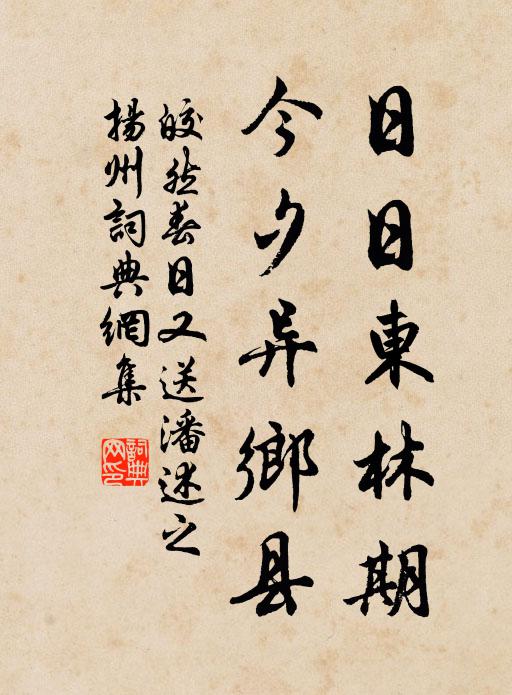 日日東林期
今夕异鄉县
皎然春日又送潘述之
揚州詞典網集
詞典网印